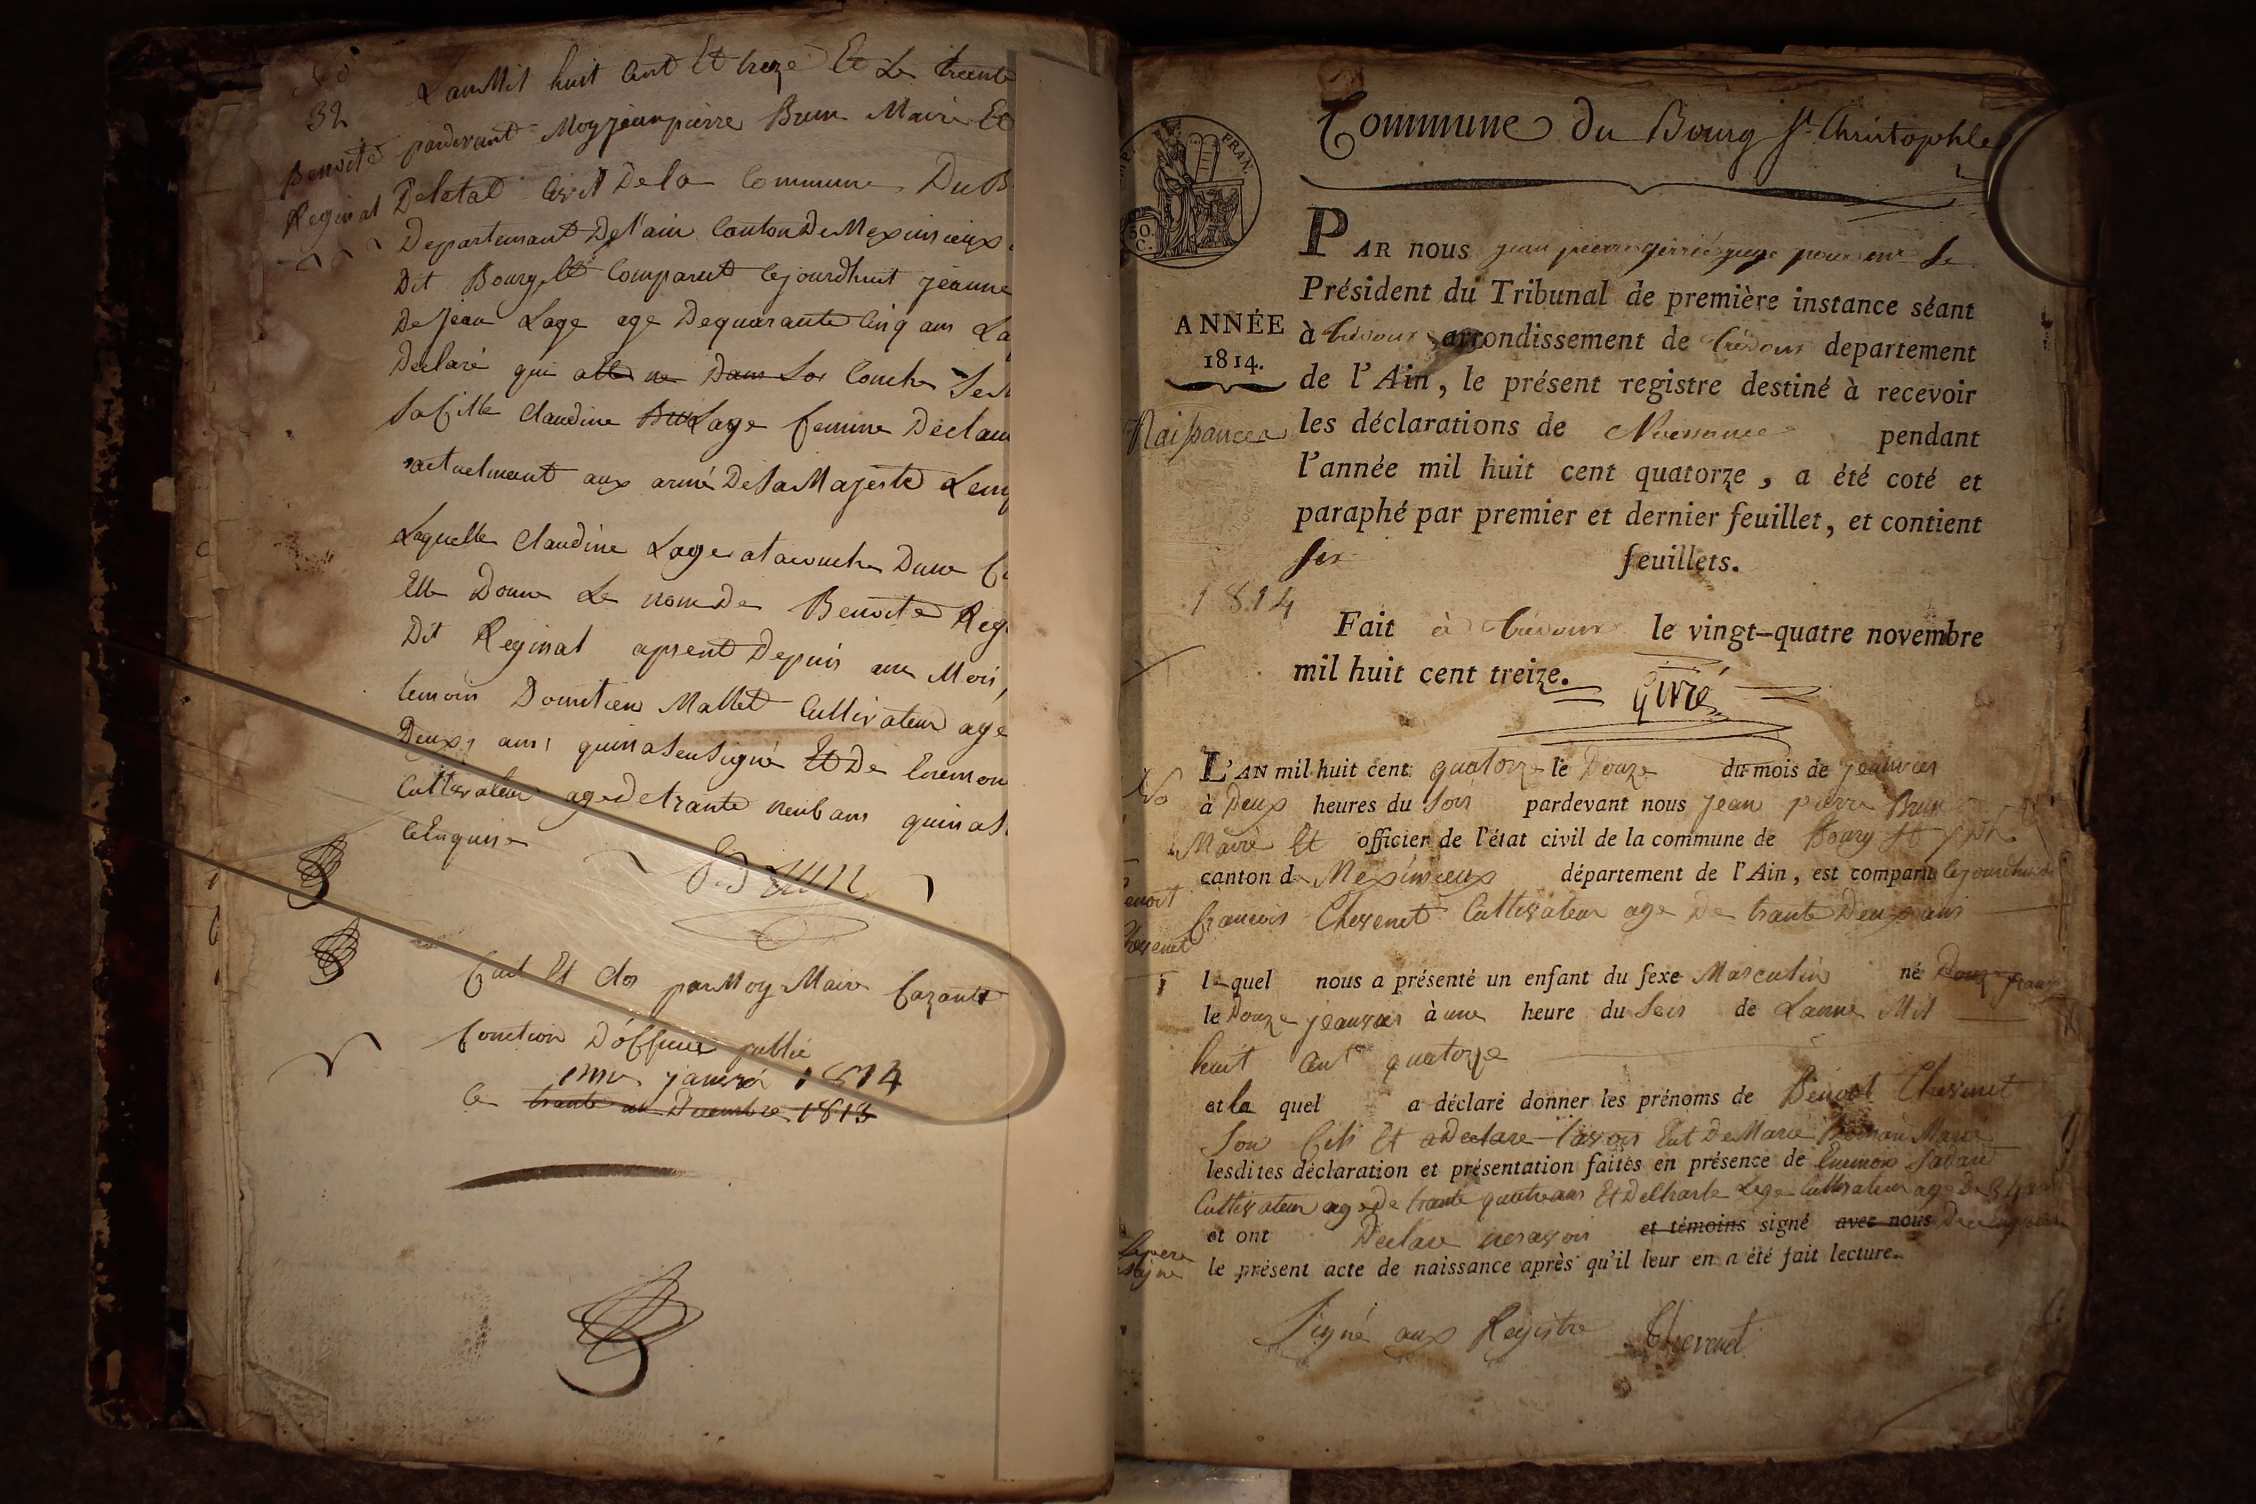 No
32
Benoite
Reginal
L'an Mil huit Cent Et treze Et Le trente
pardevant Moy jean pierre Brun Maire Et
Deletat Civil De la Commune Du B
Departemant De l'ain Canton De Meximieux
Dit Bourg Et Comparut Cejourdhuit jeanne
De jean Lage age De quarante Cinq ans La
Declaré que elle ne Dans Sos Couche Ser
Sa fille Claudine Lage femme Declau
actuelment aux armé De Sa Majesté Lem
Laquelle Claudine Lage at acouche Dune fi
Elle Donne Le nom De Benoite Reg
Dit Reginal apsent Depuis une Mois,
temoin Domitien Mallet Cultivateur age
Deux ans qui na Seu Signé Et De Enemon
Cultivateur age de trante neuf ans qui na S
Brun
fait Et Clos par Moy Maire fazant
fonction D'officié publié
janvié 1814
Ce trante un Decembre 1813
Commune du Bourg St. Christophle
FRAN.
50.
C.
ANNÉE
1814.
Naissances
1814
PAR nous jean pierre girié juge pour mr Le
Président du Tribunal de première instance séant
à trévoux arrondissement de trévoux departement
de l'Ain, le présent registre destiné à recevoir
les déclarations de Naissance pendant
l'année mil huit cent quatorze, a été coté et
paraphé par premier et dernier feuillet, et contient
six feuillets.
Fait à trévoux le vingt-quatre novembre
mil huit cent treize.
girié
No
1
Benoit
Chevenet
L'AN mil huit cent quatorze le Douze du mois de jeanvier
à Deux heures du Soir pardevant nous jean pierre Brun
Maire Et officier de l'état civil de la commune de Bourg St
canton de Meximieux département de l'Ain, est comparu cejourdhuit
francois Chevenet Cultivateur age De trante Deux ans
lequel nous a présenté un enfant du sexe Masculin né
le Douze jeanvier à une heure du Soir de Lanne Mil
huit Cent quatorze
et la quel a déclaré donner les prénoms de Benoit Chevenet
Son fils Et a Declare l'avoir Eut De Marie
lesdites déclaration et présentation faites en présence de Enemon
Cultivateur age De trante quatre ans Et De Charle Lage Cultivateur age De 34 ans
et ont Declare ne savoir et témoins signé avec nous
le présent acte de naissance après qu'il leur en a été fait lecture.
Le pere
signe
Signé aux Registre Chevenet